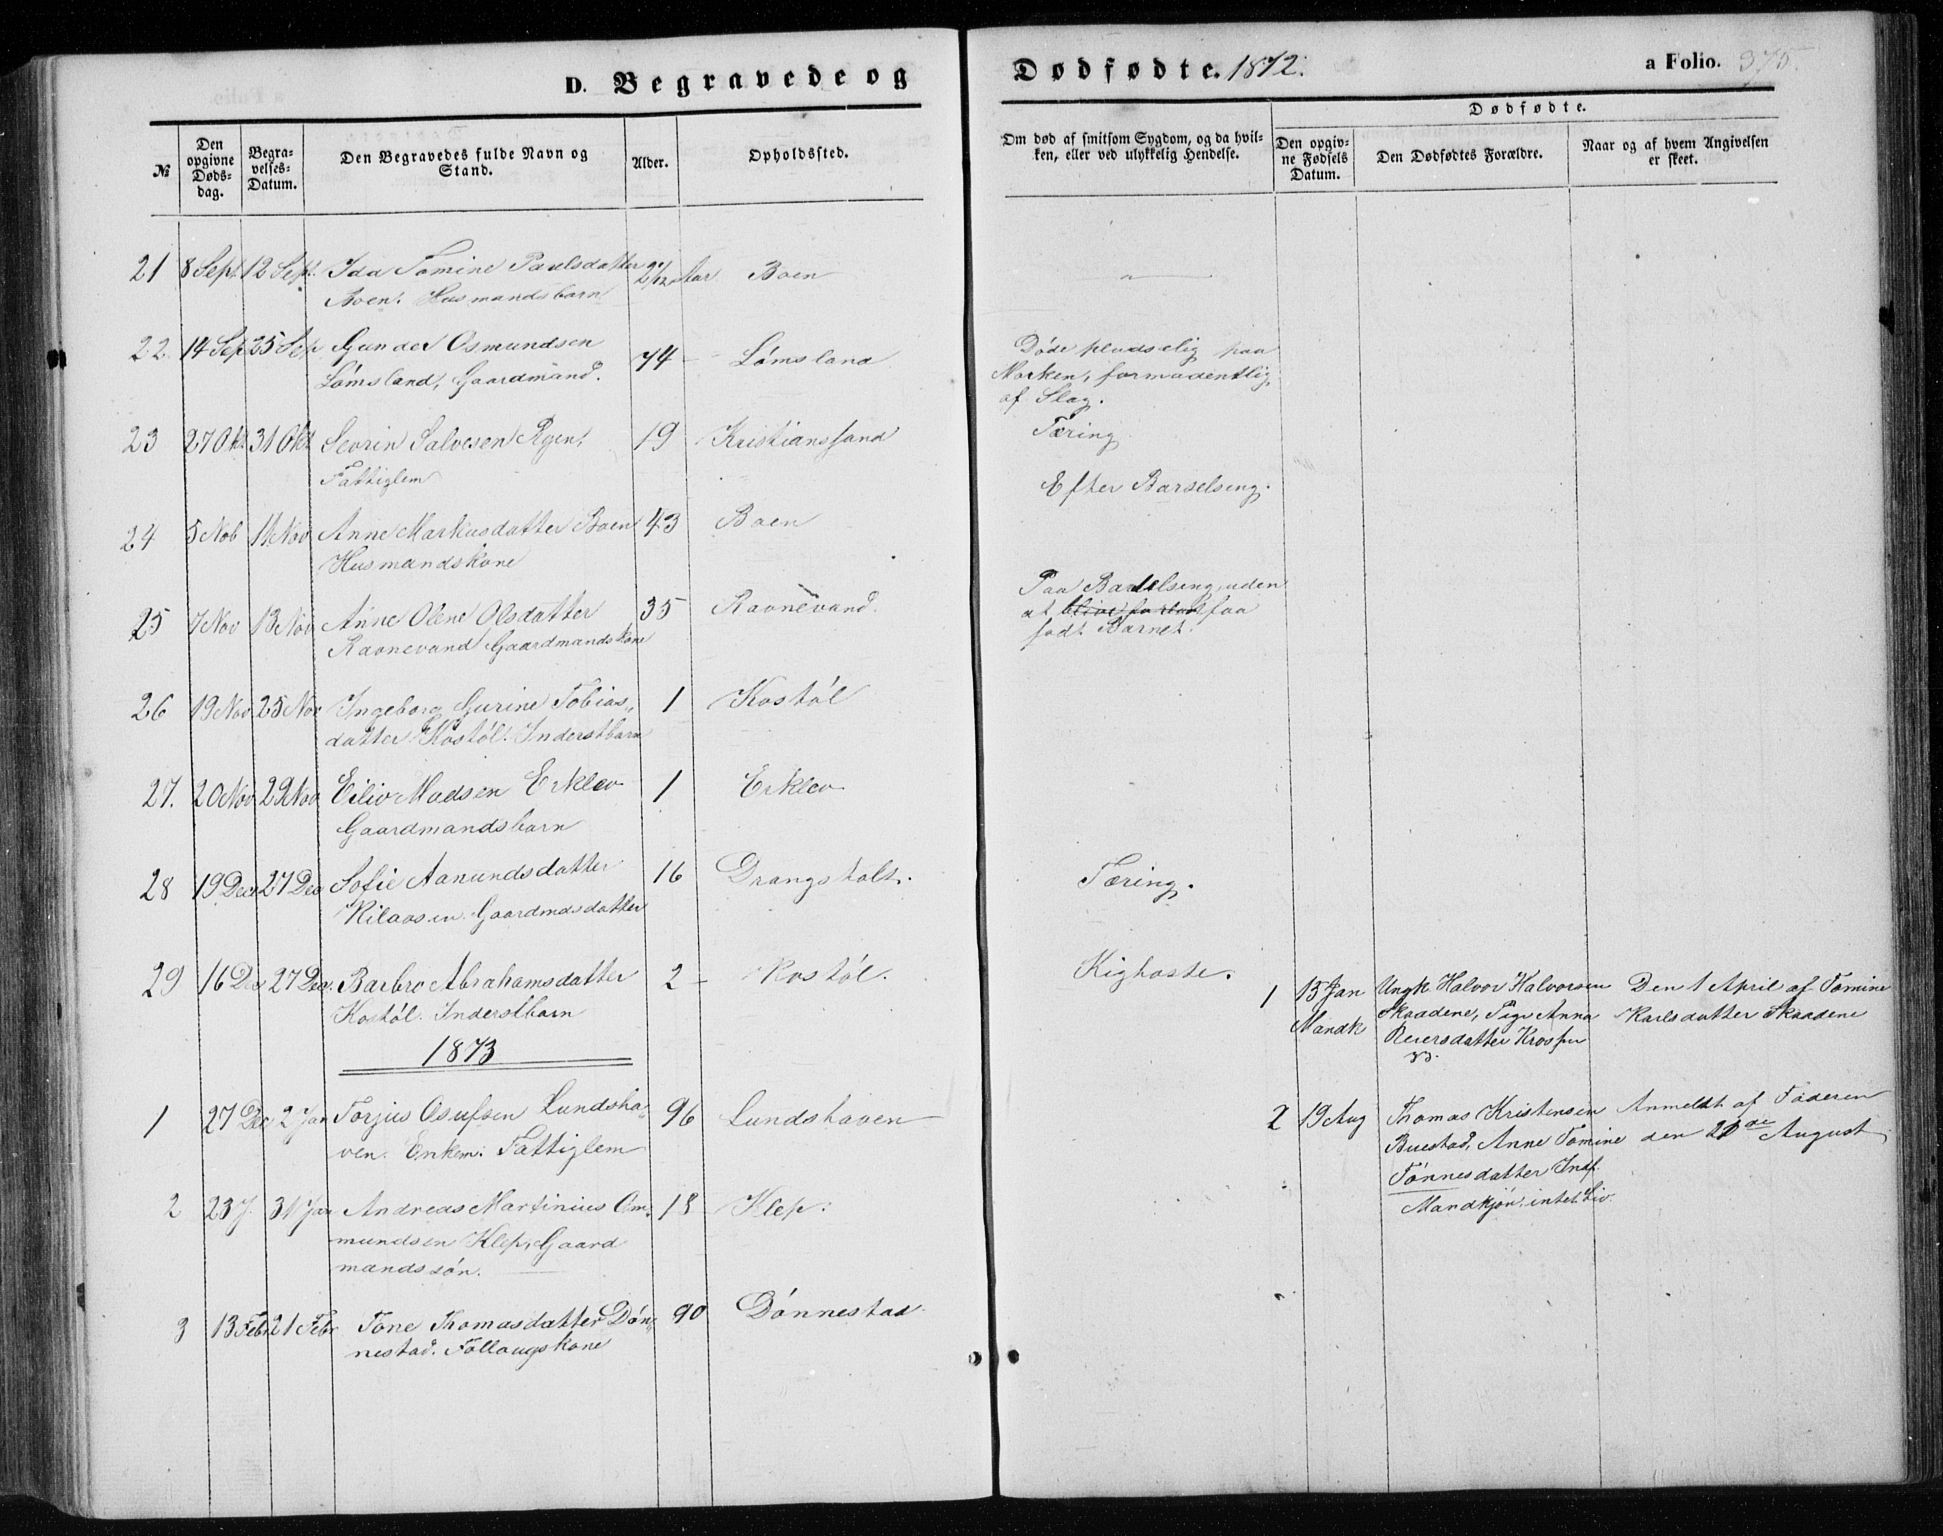 D. Begravede og Dødfødte. 1872. a Folio. 375.
№
Den opgivne Døds-dag.
Begra-velses-Datum.
Den Begravedes fulde Navn og Stand.
Alder.
Opholdssted.
Om død af smitsom Sygdom, og da hvil-
ken, eller ved ulykkelig Hendelse.
Dødfødte.
Den opgiv-ne Fødsels Datum.
Den Dødfødtes Forældre.
Naar og af hvem Angivelsen er skeet.
21 8 Sept. 12 Sept. Ida Tomine Paulsdatter Aar Boen "
Boen. Husmandsbarn
22. 14 Sep 25 Sep Gunder Osmundsen 74 - Lømsland Døde pludselig paa
Lømsland, Gaardmand. Marken, formodentlig
af Slag.
23 27 Okt 31 Okt Sevrin Salvesen Ryen, 19 Kristianssand Tæring
Fattiglem
Efter Barselseng.
24 5 Nob 11 Nov Anne Markusdatter Boen 43 Boen
Husmandskone
25 7 Nov 13 Nov Anne Olene Olsdatter 35 Ravnevand. Paa Barselseng, uden
Ravnevand Gaardmandskone at faa
født Barnet.
26 19 Nov 25 Nov Ingeborg Gurine Tobias„ 1 Kostøl
datter Kostøl. Inderstbarn
27. 20 Nov 29 Nov Eiliv Madsen Erklev 1 Erklev
Gaardmandsbarn
28 19 Dec 27 Dec Sofie Aanundsdatter 16 Drangsholt. Tæring.
Rilaasen. Gaardmdsdatter
29 16 Dec 27 Dec. Barbro Abrahamsdatter 2 - Kostøl. Kighoste.
Kostøl. Inderstbarn
1 15 Jan Ungk Halvor Halvorsen Den 1 April af Tomine
Mandk Skaadene, Pige Anna Karlsdatter Skaadene
Reiersdatter Krossen
1873
1 27 Dec 2 Jan Torjus Osufsen Lundsha„ 96 Lundshaven
ven. Enkem: Fattiglem
2 19 Aug Thomas Kristensen Anmeldt af Faderen
Buestad, Anne Tomine den 21de August
Tønnesdatter Indf.
Mandkjøn, intet Liv.
2 23 J. 31 Jan Andreas Martinius Om„ 18 Klep.
mundsen Klep, Gaard
mandssøn.
3 13 Febr 21 Febr Tone Thomasdatter Døn„ 90 Dønnestad
nestad. Follaugskone